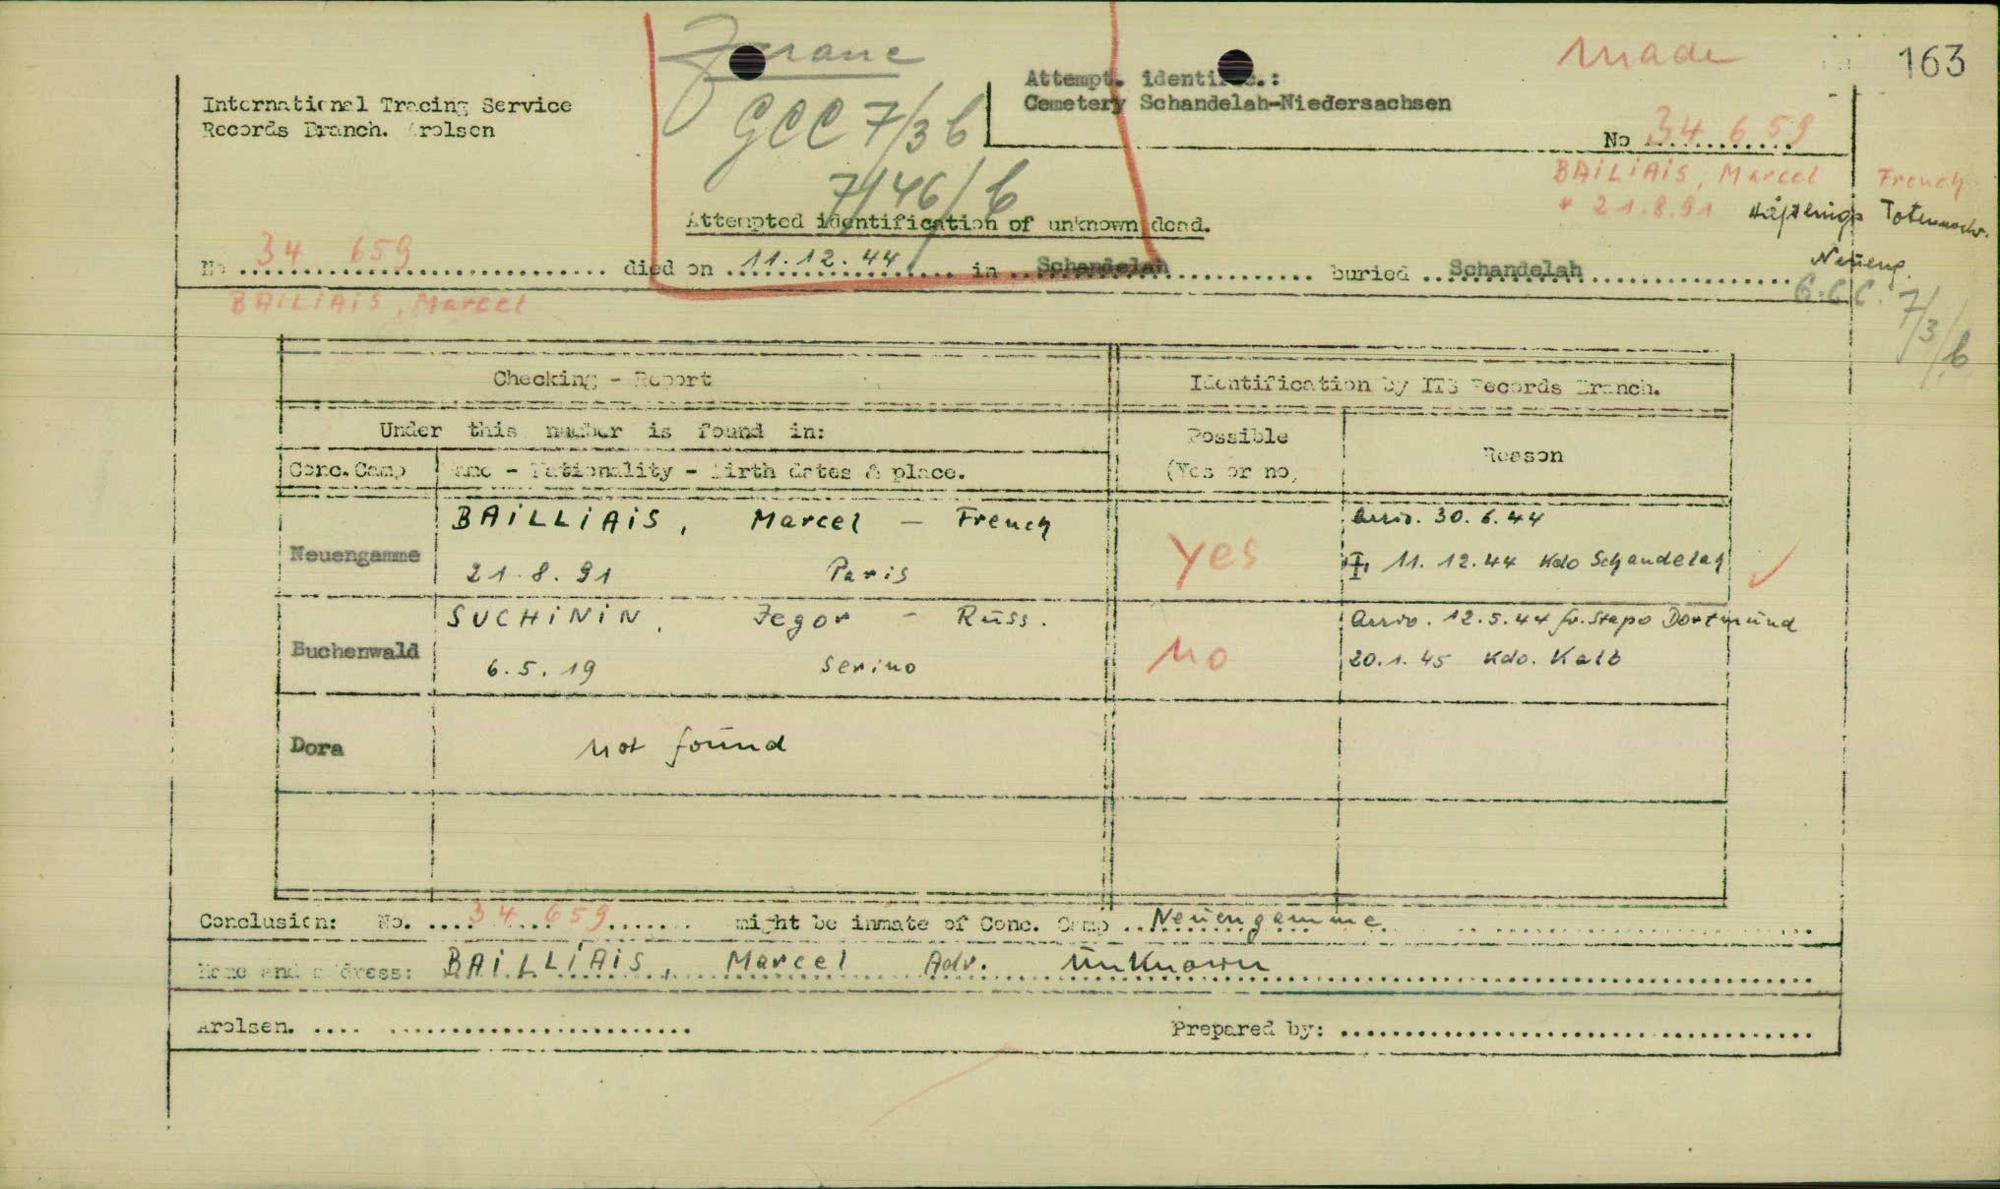 163
Made
Franc
GCC 7/3b
7/46/b
International Tracing Service
Records Branch. Arolsen
Attempt. identific.:
Cemetery Schandelah-Niedersachsen
No 34 659
BAiLiAiS, Marcel French
* 21.8.91 Häftlings Totennachw.
Neueng.
G.C.C. 7/3/b
Attempted identification of unknown dead.
No 34 659 died on 11.12.44 in Schandelah buried Schandelah
BAiLiAiS, Marcel
Checking - Report
Identification by ITS Records Branch.
Under this number is found in:
Possible
(Yes or no)
Reason
Conc.Camp
Name - Nationality - Birth dates & place.
Neuengamme
BAiLLiAiS, Marcel - French
21.8.91 Paris
Yes
arriv. 30.6.44
11.12.44 Kdo Schandelah
Buchenwald
SUCHiNiN, Jegor - Russ.
6.5.19 Serino
No
arriv. 12.5.44 fr. Stapo Dortmund
20.1.45 Kdo. Kalb
Dora
not found
Conclusion: No. 34 659 might be inmate of Conc. Camp Neuengamme
Name and address: BAiLLiAiS, Marcel Adr. unknown
Arolsen.
Prepared by: